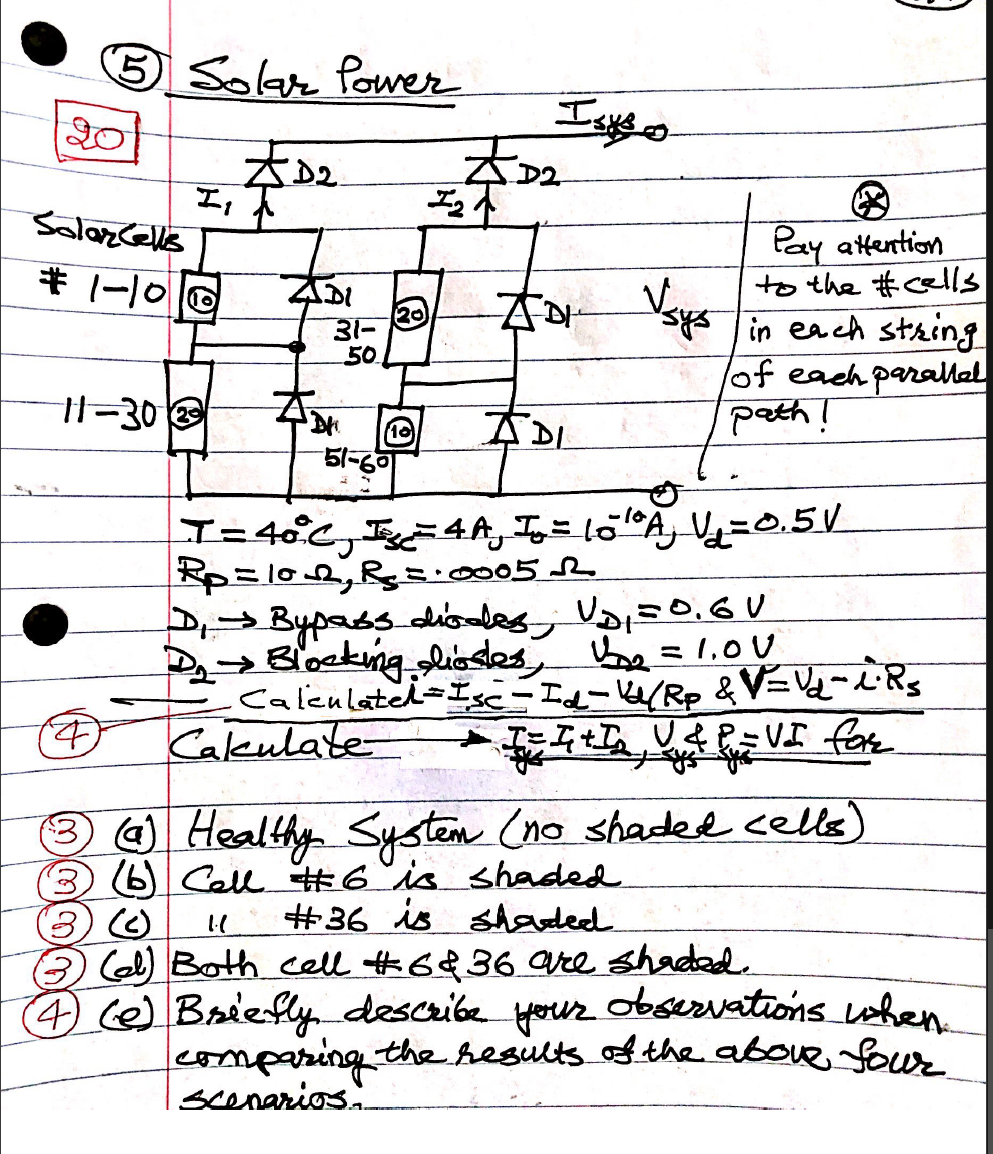 ⑤ Solar Power
20
Isys
D2
D2
I₁
I₂
Solar Cells
# 1-10
10
D1
31-
50
20
D1
Vsys
11-30
20
D1
51-60
10
D1
⊛
Pay attention
to the # cells
in each string
of each parallel
path!
T = 40°C, Isc = 4A, I₀ = 10⁻¹⁰A, Vd = 0.5V
Rp = 10 Ω, Rs = .0005 Ω
D₁ → Bypass diodes, VD1 = 0.6 V
D₂ → Blocking diodes, VD2 = 1.0 V
Calculate i = Isc - Id - Vd/Rp & V = Vd - i·Rs
④ Calculate → Isys = I₁ + I₂, Vsys & Psys = VI for
③ (a) Healthy System (no shaded cells)
③ (b) Cell #6 is shaded
③ (c) " #36 is shaded
③ (d) Both cell #6 & 36 are shaded.
④ (e) Briefly describe your observations when
comparing the results of the above four
scenarios.